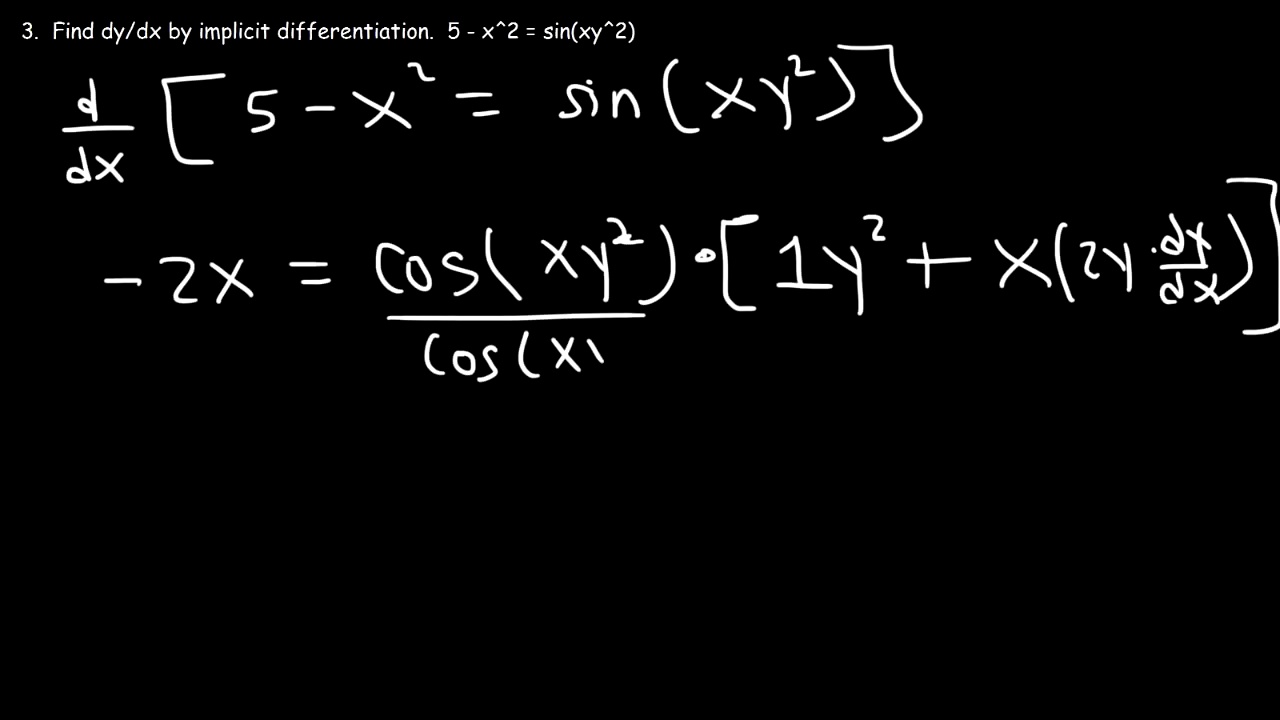 3. Find dy/dx by implicit differentiation. 5 - x^2 = sin(xy^2)
d/dx [ 5 - x² = sin(xy²) ]
-2x = cos(xy²) · [ 1y² + x(2y · dy/dx) ]
cos(x